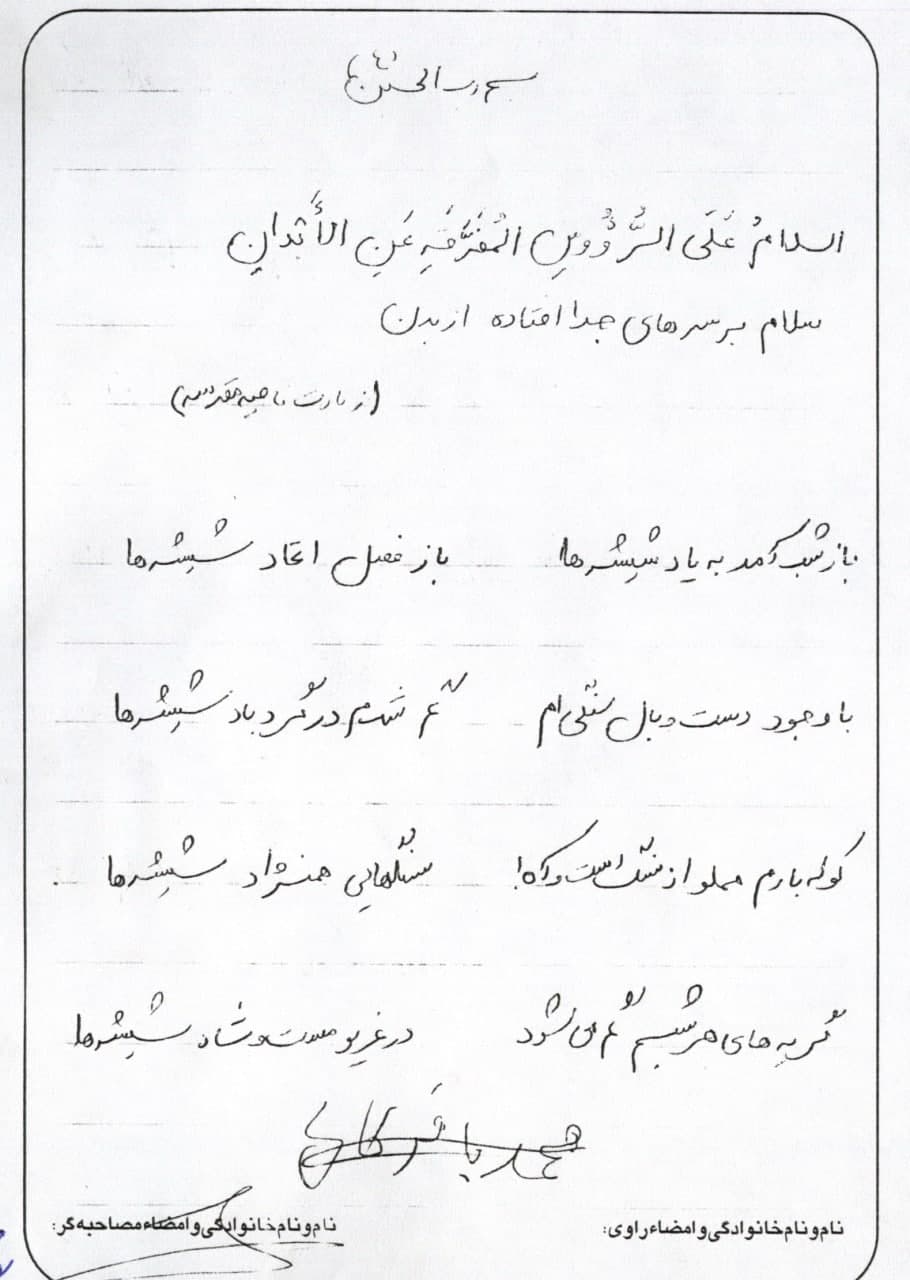 بسم رب الحسین
السلامُ عَلَی الرُّؤُوسِ المُفَرَّقَهِ عَنِ الأَبْدانِ
سلام بر سرهای جدا افتاده از بدن
(زیارت ناحیه مقدسه)
باز شب آمد به یاد شیشه‌ها باز فصل اتحاد شیشه‌ها
با وجود دست و بال سنگی‌ام گم شدم در گردباد شیشه‌ها
کوله بارم مملو از سنگ است و آه! سنگهایی همنژاد شیشه‌ها
گریه‌های هر شبم گم می‌شود در غریو مست و شاد شیشه‌ها
محمد باقر
نام و نام خانوادگی و امضاء راوی: نام و نام خانوادگی و امضاء مصاحبه گر: